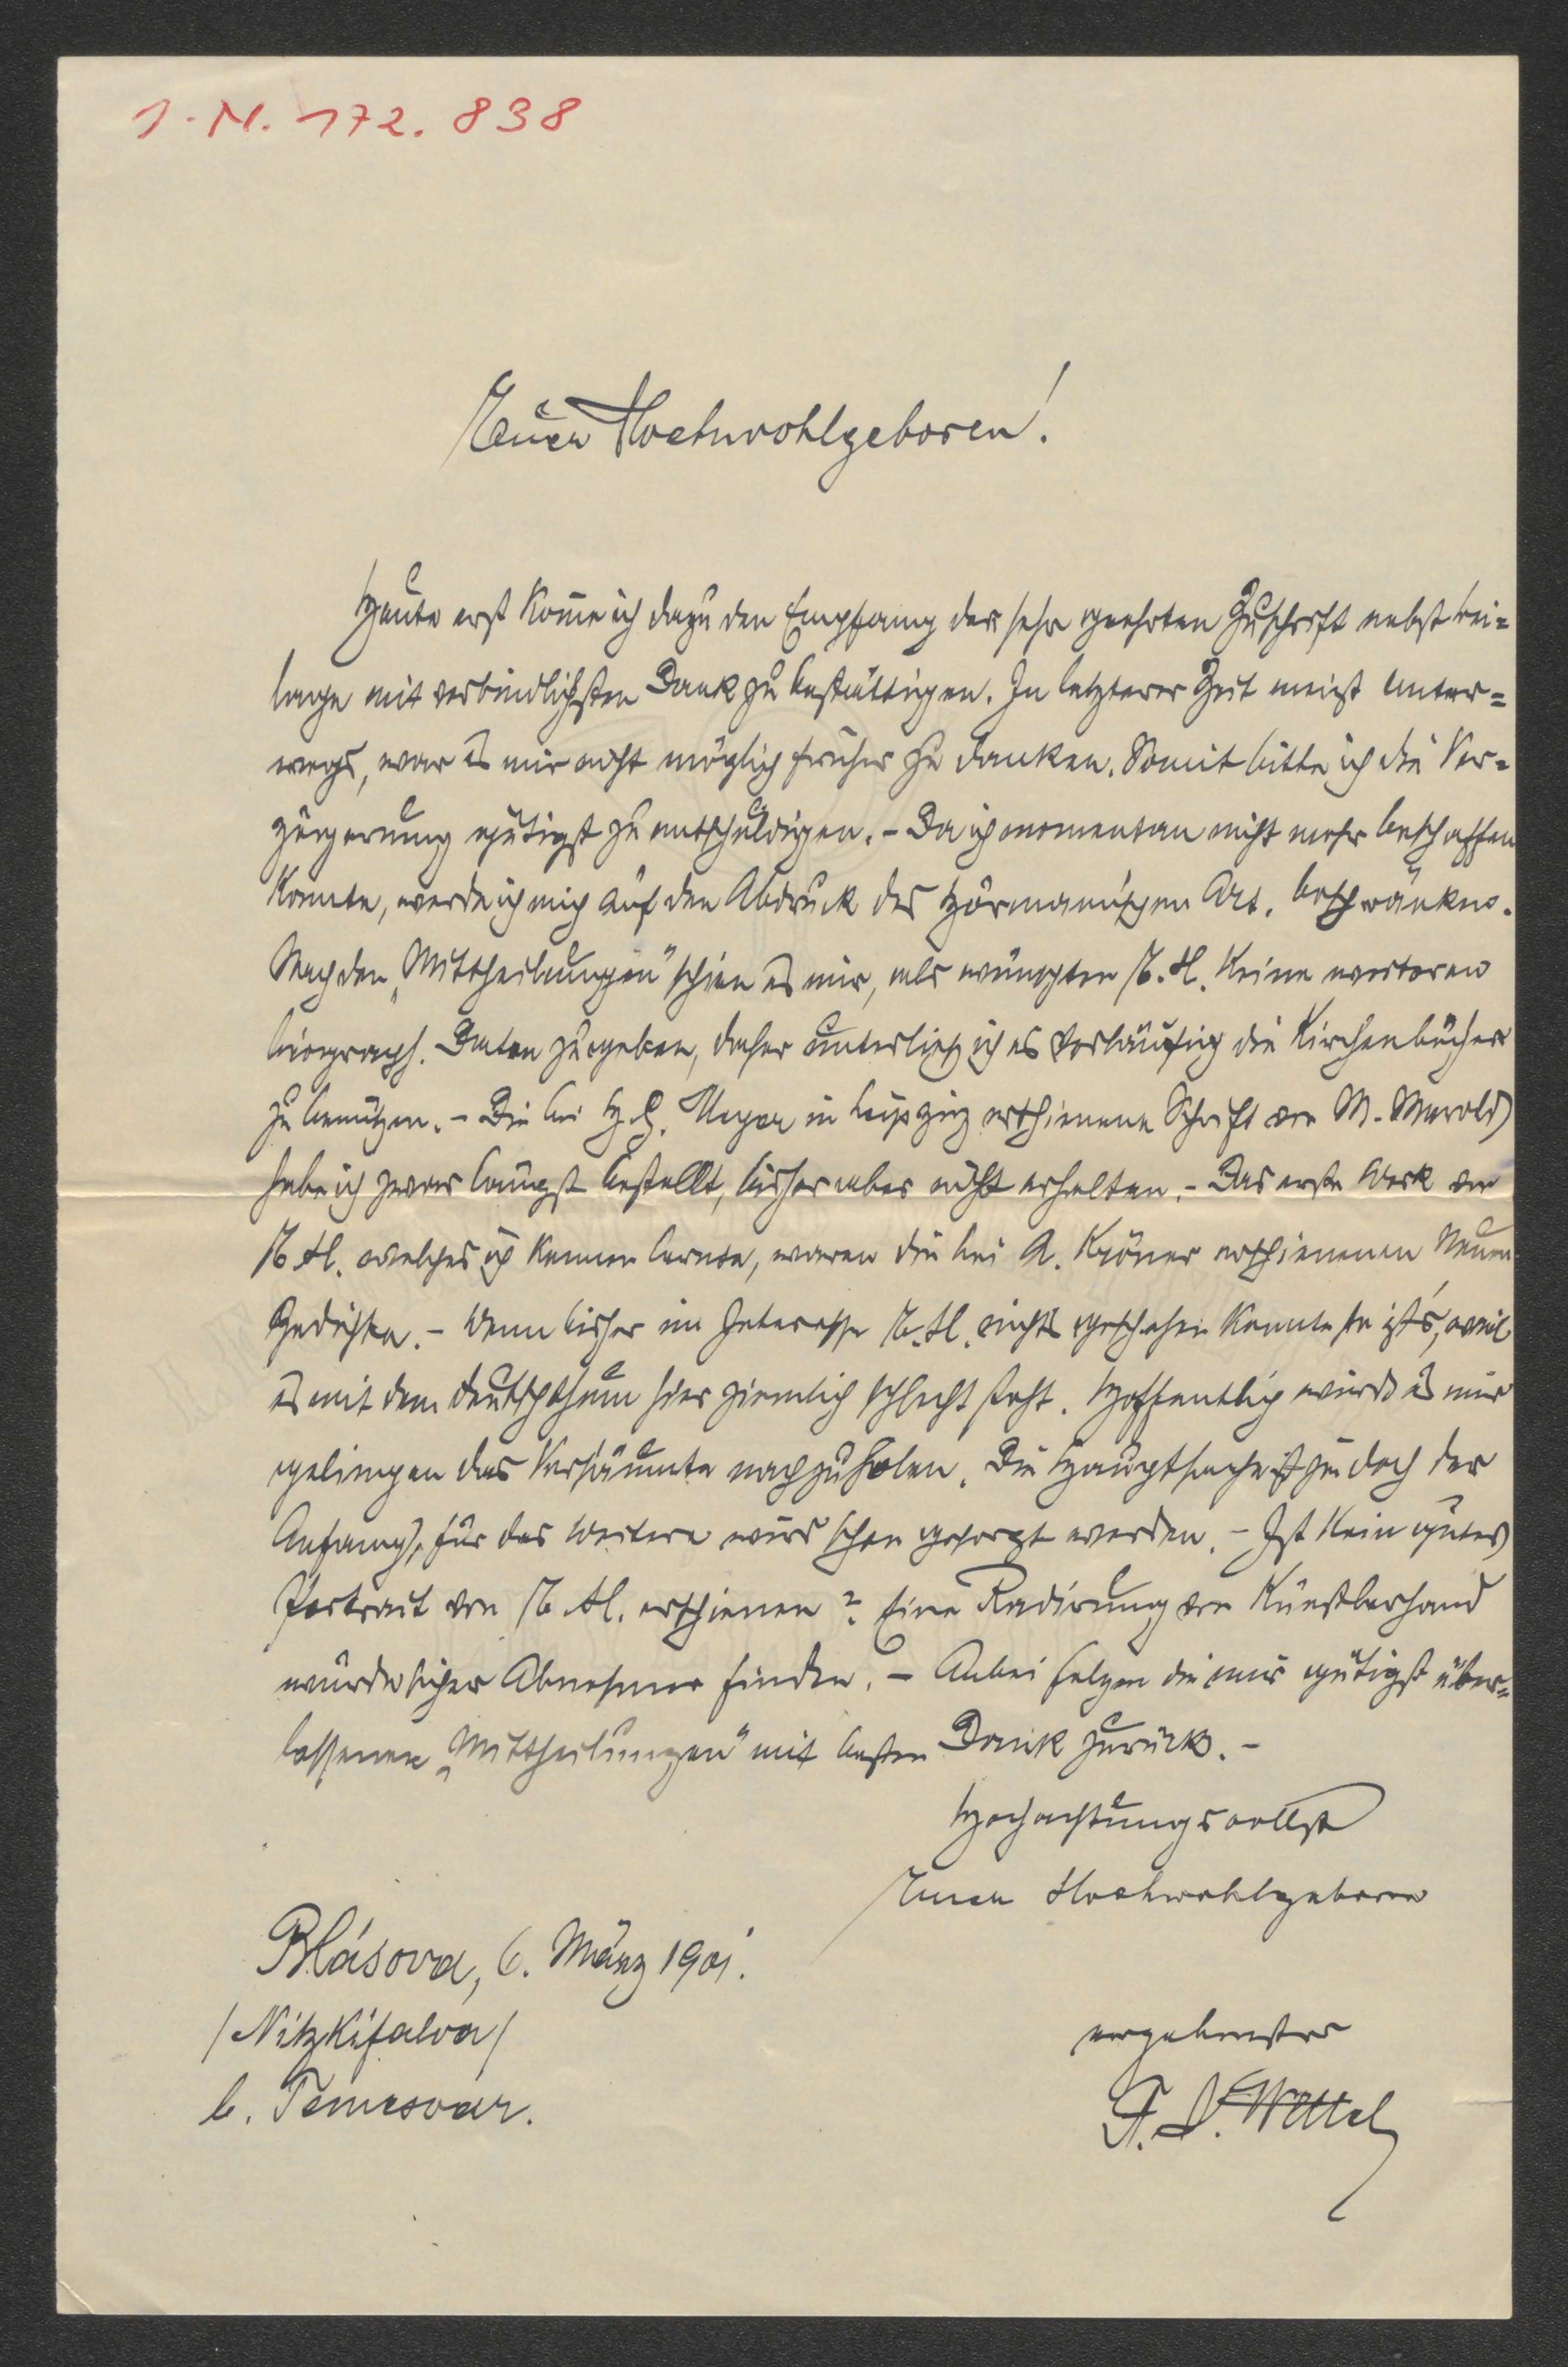 I. N. 172.838
Euer Hochwohlgeboren!
Heute erst komme ich dazu den Empfang der sehr geehrten Zuschrift nebst Bei=
lage mit verbindlichsten Dank zu bestättigen. In letzterer Zeit meist unter=
wegs, war es mir nicht möglich früher zu danken. Somit bitte ich die Ver=
zögerung gütigst zu entschuldigen. – Da ich momentan nicht mehr beschaffen
konnte, werde ich mich auf den Abdruck des Hörmann'schen Art. beschränken.
Nach den „Mittheilungen" schien es mir, als wünschten
keine weiteren
biograph. Daten zu geben, daher unterließ ich es vorläufig die Kirchenbücher
zu benützen. – Die bei H. H. Meyer in Leipzig erschienene Schrift von M. Morold
habe ich zwar längst bestellt, bisher aber nicht erhalten. – Das erste Werk von
welches ich kennen lernte, waren die bei A. Kröner erschienenen Neuen
Gedichte. – Wenn bisher im Interesse
nichts geschehen konnte so ist's, weil
es mit dem Deutschthum hier ziemlich schlecht steht. Hoffentlich wird es mir
gelingen das Versäumte nachzuholen. Die Hauptsache ist jedoch der
Anfang, für das Weitere wird schon gesorgt werden. – Ist kein gutes
Portrait von
erschienen? Eine Radirung von Künstlerhand
würde sicher Abnehmer finden. – Anbei folgen die mir gütigst über=
lassenen „Mittheilungen" mit besten Dank zurück. –
Hochachtungsvollst
Euer Hochwohlgeboren
Blásova, 6. März 1901.
/Nitzkifalva/
b. Temesvár.
ergebenster
F. W. Wettel